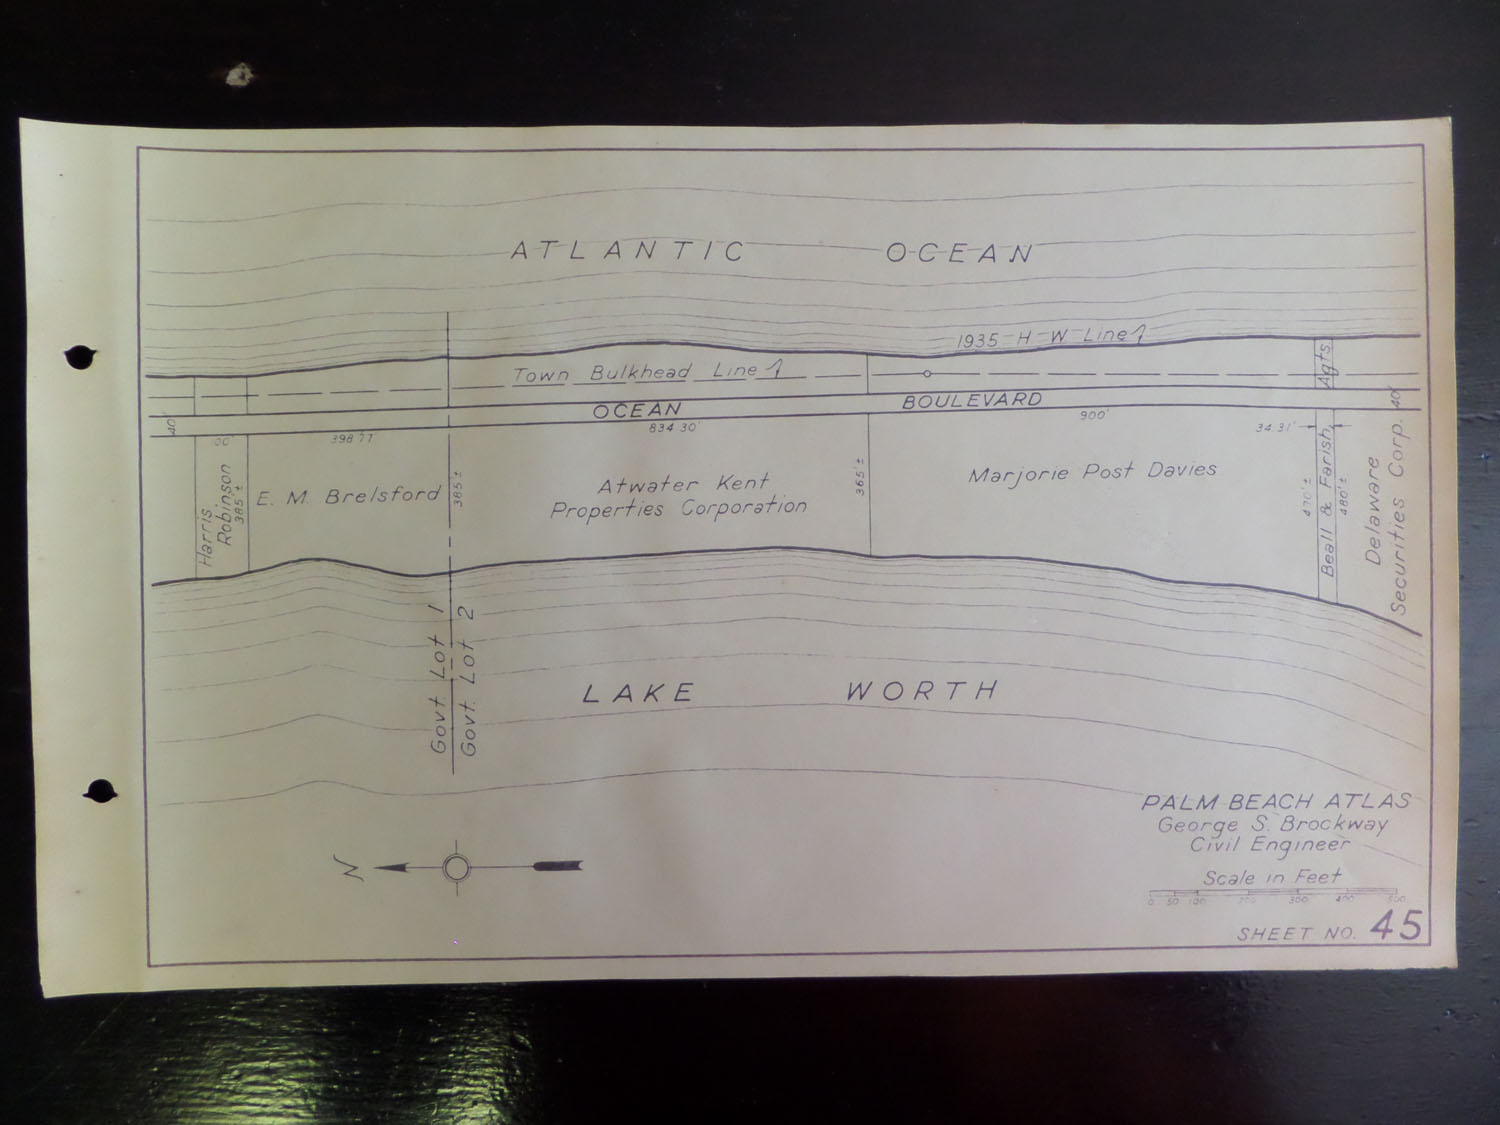 ATLANTIC OCEAN
1935 H W Line
Town Bulkhead Line
OCEAN BOULEVARD
40'
398 77'
834 30'
900'
34 31'
40'
Harris
Robinson
385' ±
E. M. Brelsford
385' ±
Atwater Kent
Properties Corporation
365' ±
Marjorie Post Davies
470' ±
Beall & Farish, Agts.
480' ±
Delaware
Securities Corp.
Govt. Lot 1
Govt. Lot 2
LAKE WORTH
N
PALM BEACH ATLAS
George S. Brockway
Civil Engineer
Scale in Feet
0 50 100 200 300 400 500
SHEET NO. 45